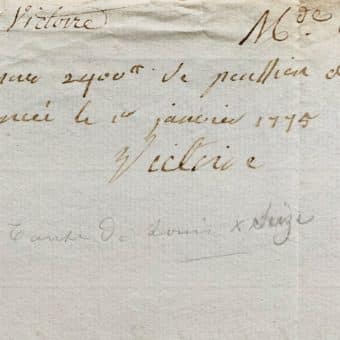 Victoire
Mde
2400tt de penssion d
le 1er janvier 1775
Victoire
tante de Louis x Seize